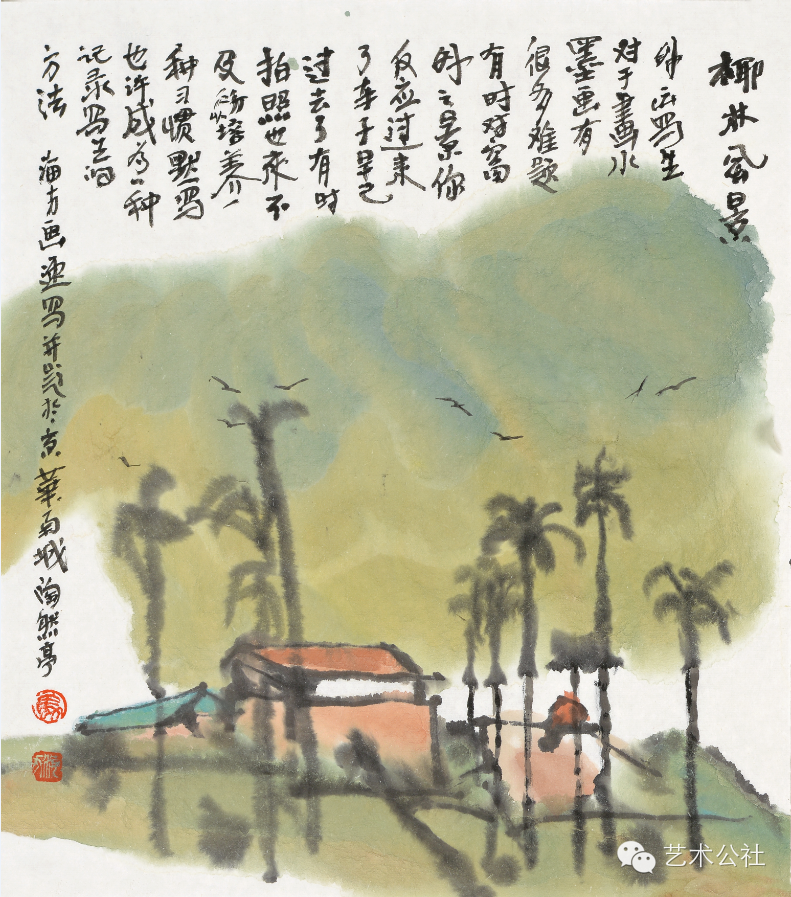 椰林风景
外出写生
对于畫水
墨画有
很多难题
有时对窗
外之景你
反应过来
了车子早已
过去了有时
拍照也来不
及培养一
种习惯默写
也许成为一种
记录写生的
方法 海方画写并题於京華南城陶然亭
艺术公社